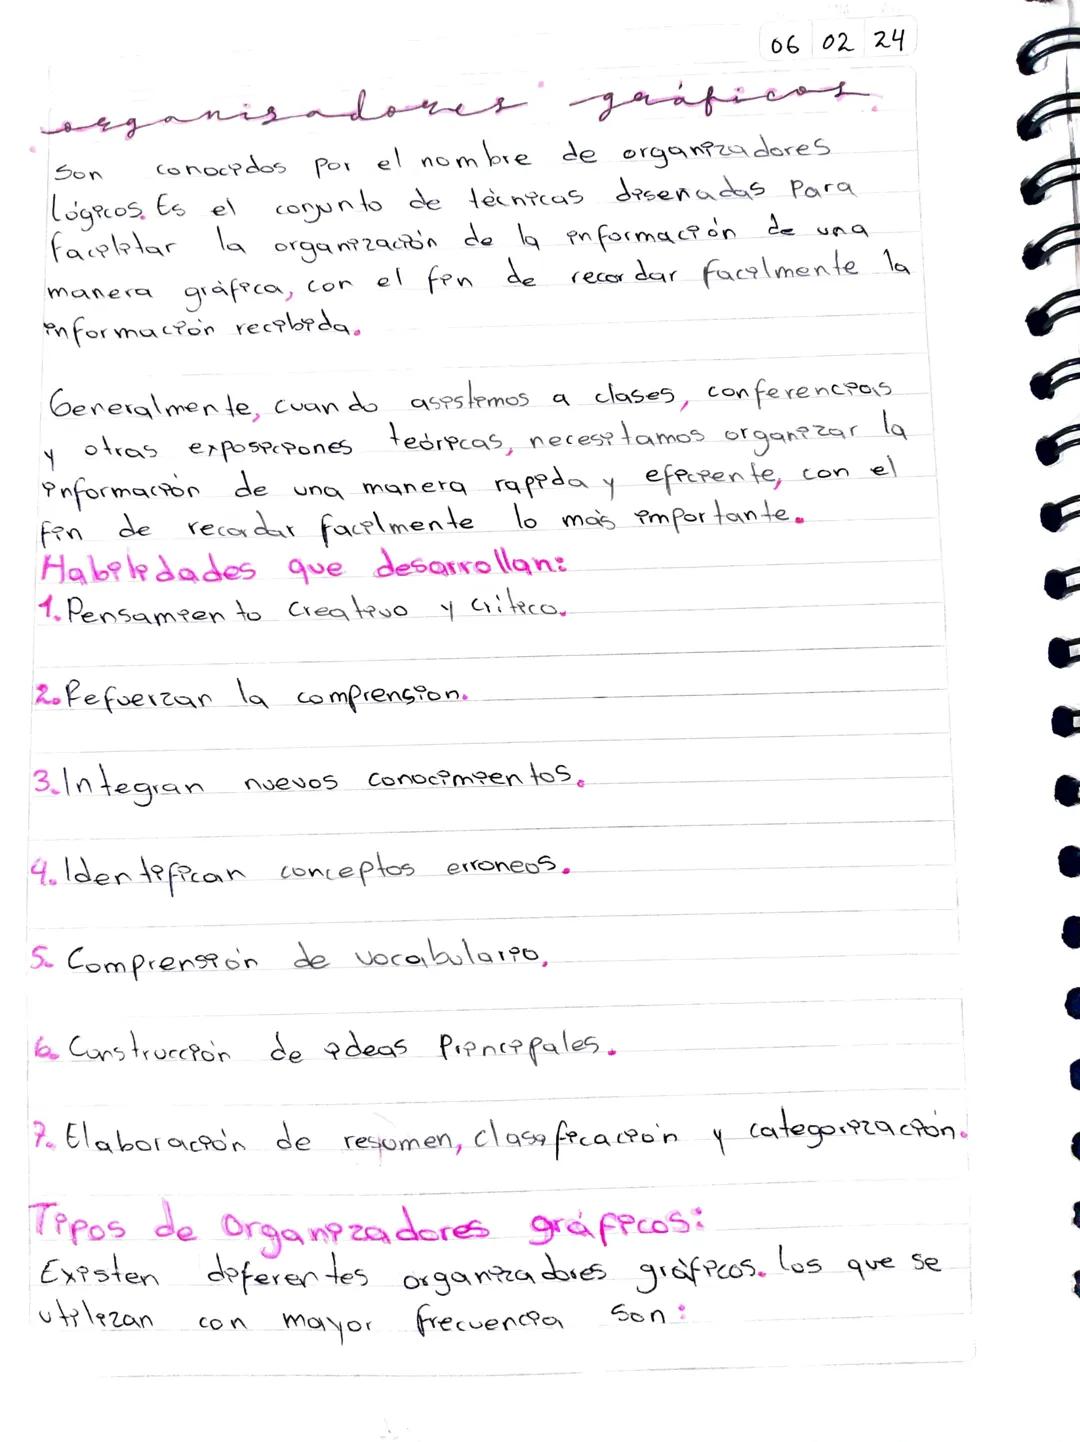 06 02 24
organisadores gráficos.
Son conocidos por el nombre de organizadores
lógicos. Es el conjunto de técnicas diseñadas para
facilitar la organización de la información de una
manera gráfica, con el fin de recordar facilmente la
información recibida.
Generalmente, cuando asistemos a clases, conferencias
y otras exposiciones teóricas, necesitamos organizar la
información de una manera rapida y eficiente, con el
fin de recordar facilmente lo más importante.
Habilidades que desarrollan:
1. Pensamiento Creativo y Critico.
2. Refuerzan la comprension.
3. Integran nuevos conocimientos.
4. Identifican conceptos erroneos.
5. Comprensión de vocabulario.
6. Construcción de ideas Principales.
7. Elaboración de resumen, clasificación y categorización.
Tipos de Organizadores gráficos:
Existen diferentes organizadores gráficos. los que se
utilizan con mayor frecuencia son: